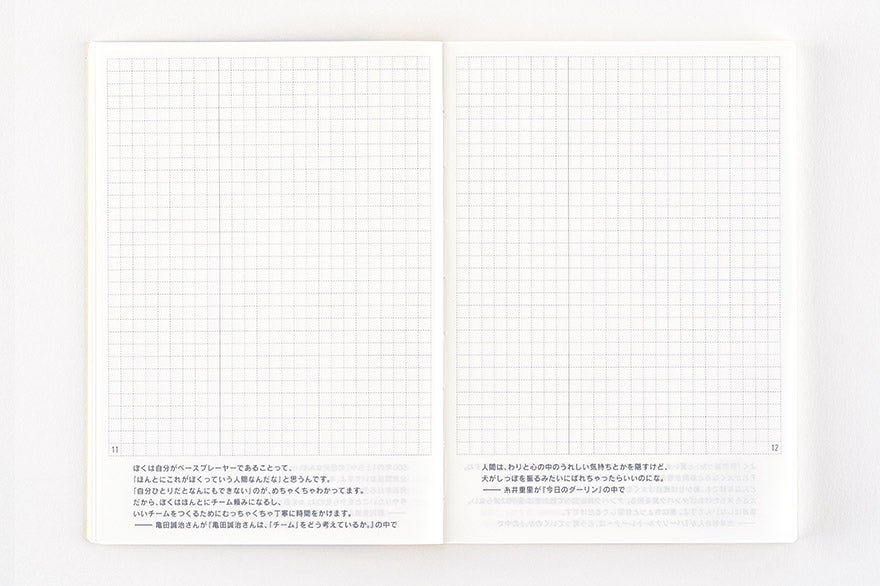 11
ぼくは自分がベースプレーヤーであることって、
「ほんとにこれがぼくっていう人間なんだな」と思うんです。
「自分ひとりだとなんにもできない」のが、めちゃくちゃわかってます。
だから、ぼくはほんとにチーム頼みになるし、
いいチームをつくるためにむっちゃくちゃ丁寧に時間をかけます。
—— 亀田誠治さんが『亀田誠治さんは、「チーム」をどう考えているか。』の中で
12
人間は、わりと心の中のうれしい気持ちとかを隠すけど、
犬がしっぽを振るみたいにばれちゃったらいいのにな。
—— 糸井重里が『今日のダーリン』の中で